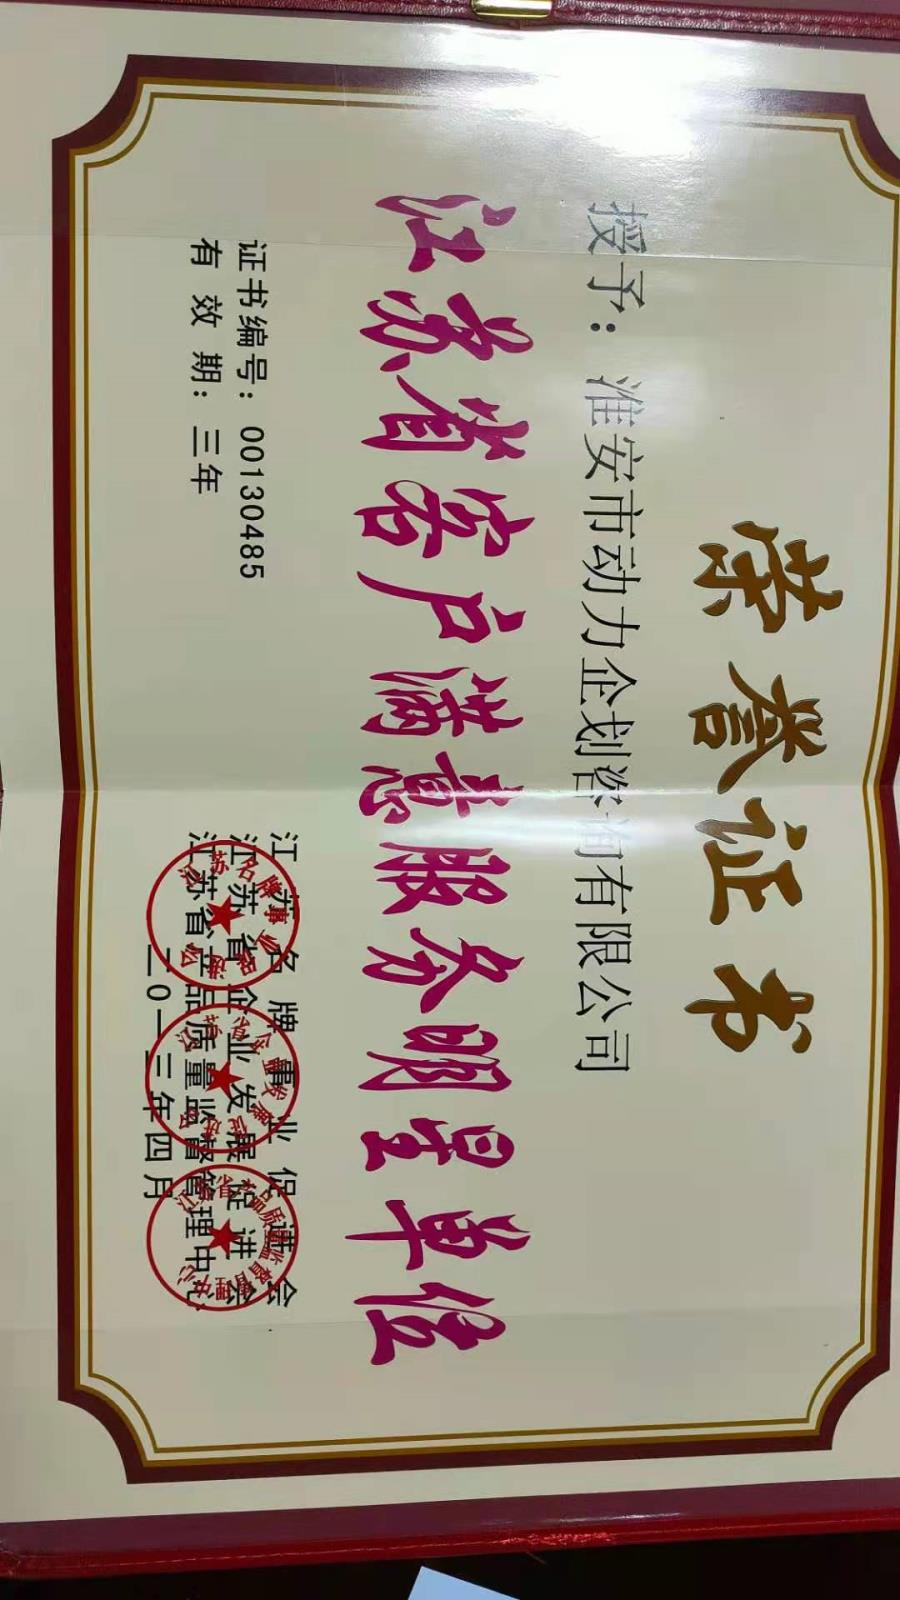 荣誉证书
授予：淮安市动力企划咨询有限公司
江苏省客户满意服务明星单位
证书编号：00130485
有效期：三年
江苏名牌事业促进会
江苏省企业发展促进会
江苏省产品质量监督管理中心
二0一三年四月